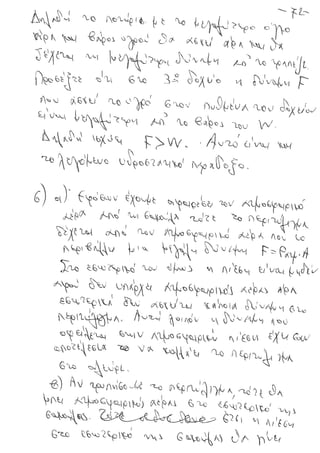 -72-
Δηλαδή το ποτήρι με το μεγαλύτερο ύψος
άρα και βάρος υγρού θα ασκεί άρα και θα
δέχεται τη μεγαλύτερη δύναμη απ' το τραπέζι.
Προσέξτε ότι στο 3ο δοχείο η δύναμη F
που ασκεί το υγρό στον πυθμένα του δοχείου
είναι μεγαλύτερη απ' το βάρος του W.
Δηλαδή ισχύει F>W. Αυτό είναι και
το λεγόμενο υδροστατικό παράδοξο.
6) α) Εφόσον έχουμε αφαιρέσει τον ατμοσφαιρικό
αέρα από τη σακούλα τότε το περιτύλιγμα
δέχεται από τον ατμοσφαιρικό αέρα που το
περιβάλλει μια μεγάλη δύναμη F=Pατμ·A
Στο εσωτερικό του όμως η πίεση είναι μηδέν
αφού δεν υπάρχει ατμοσφαιρικός αέρας άρα
εσωτερικά δεν ασκείται κάποια δύναμη στο
περιτύλιγμα. Αυτή λοιπόν η δύναμη που
οφείλεται στην ατμοσφαιρική πίεση έχει σαν
αποτέλεσμα το να κολλάει το περιτύλιγμα
στο
β) Αν τρυπήσουμε το περιτύλιγμα, τότε θα
μπει ατμοσφαιρικός αέρας στο εσωτερικό της
σακούλας. έτσι η πίεση
στο εσωτερικό της σακούλας θα γίνει